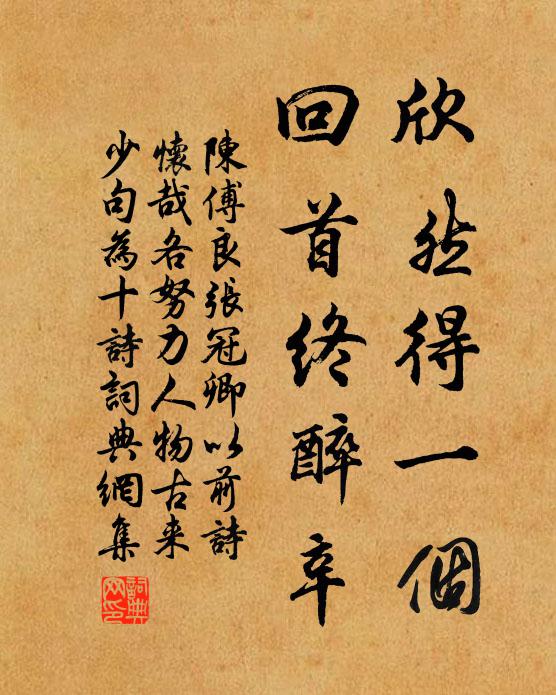 欣然得一個
回首終醉辛
陳傅良張冠卿以前詩
懷哉各努力人物古来
少句為十詩詞典網集